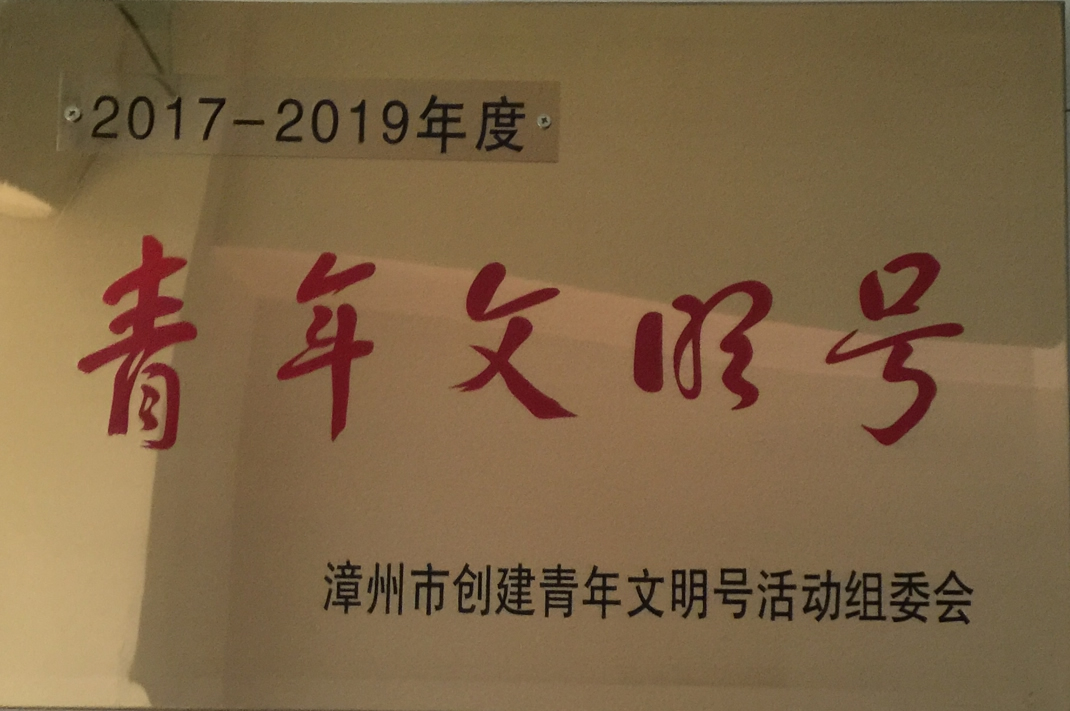 2017-2019年度
青年文明号
漳州市创建青年文明号活动组委会